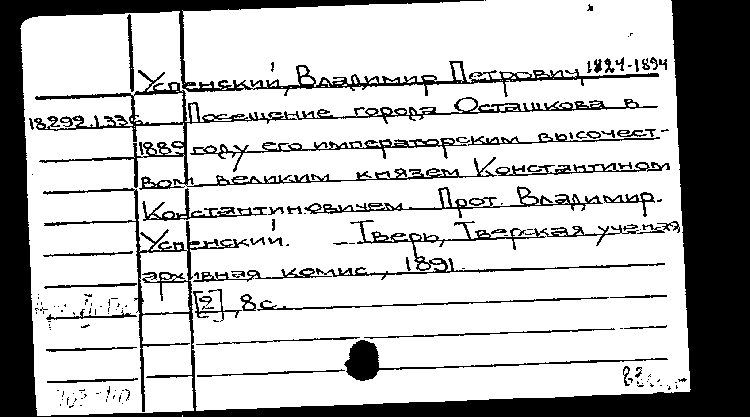 Успенский, Владимир Петрович, 1824-1894
18.292.1.336. Посещение города Осташкова в
1889 году его императорским высочест-
вом великим князем Константином
Константиновичем. Прот. Владимир.
Успенский. Тверь, Тверская ученая
архивная комис., 1891.
[2], 8 с.